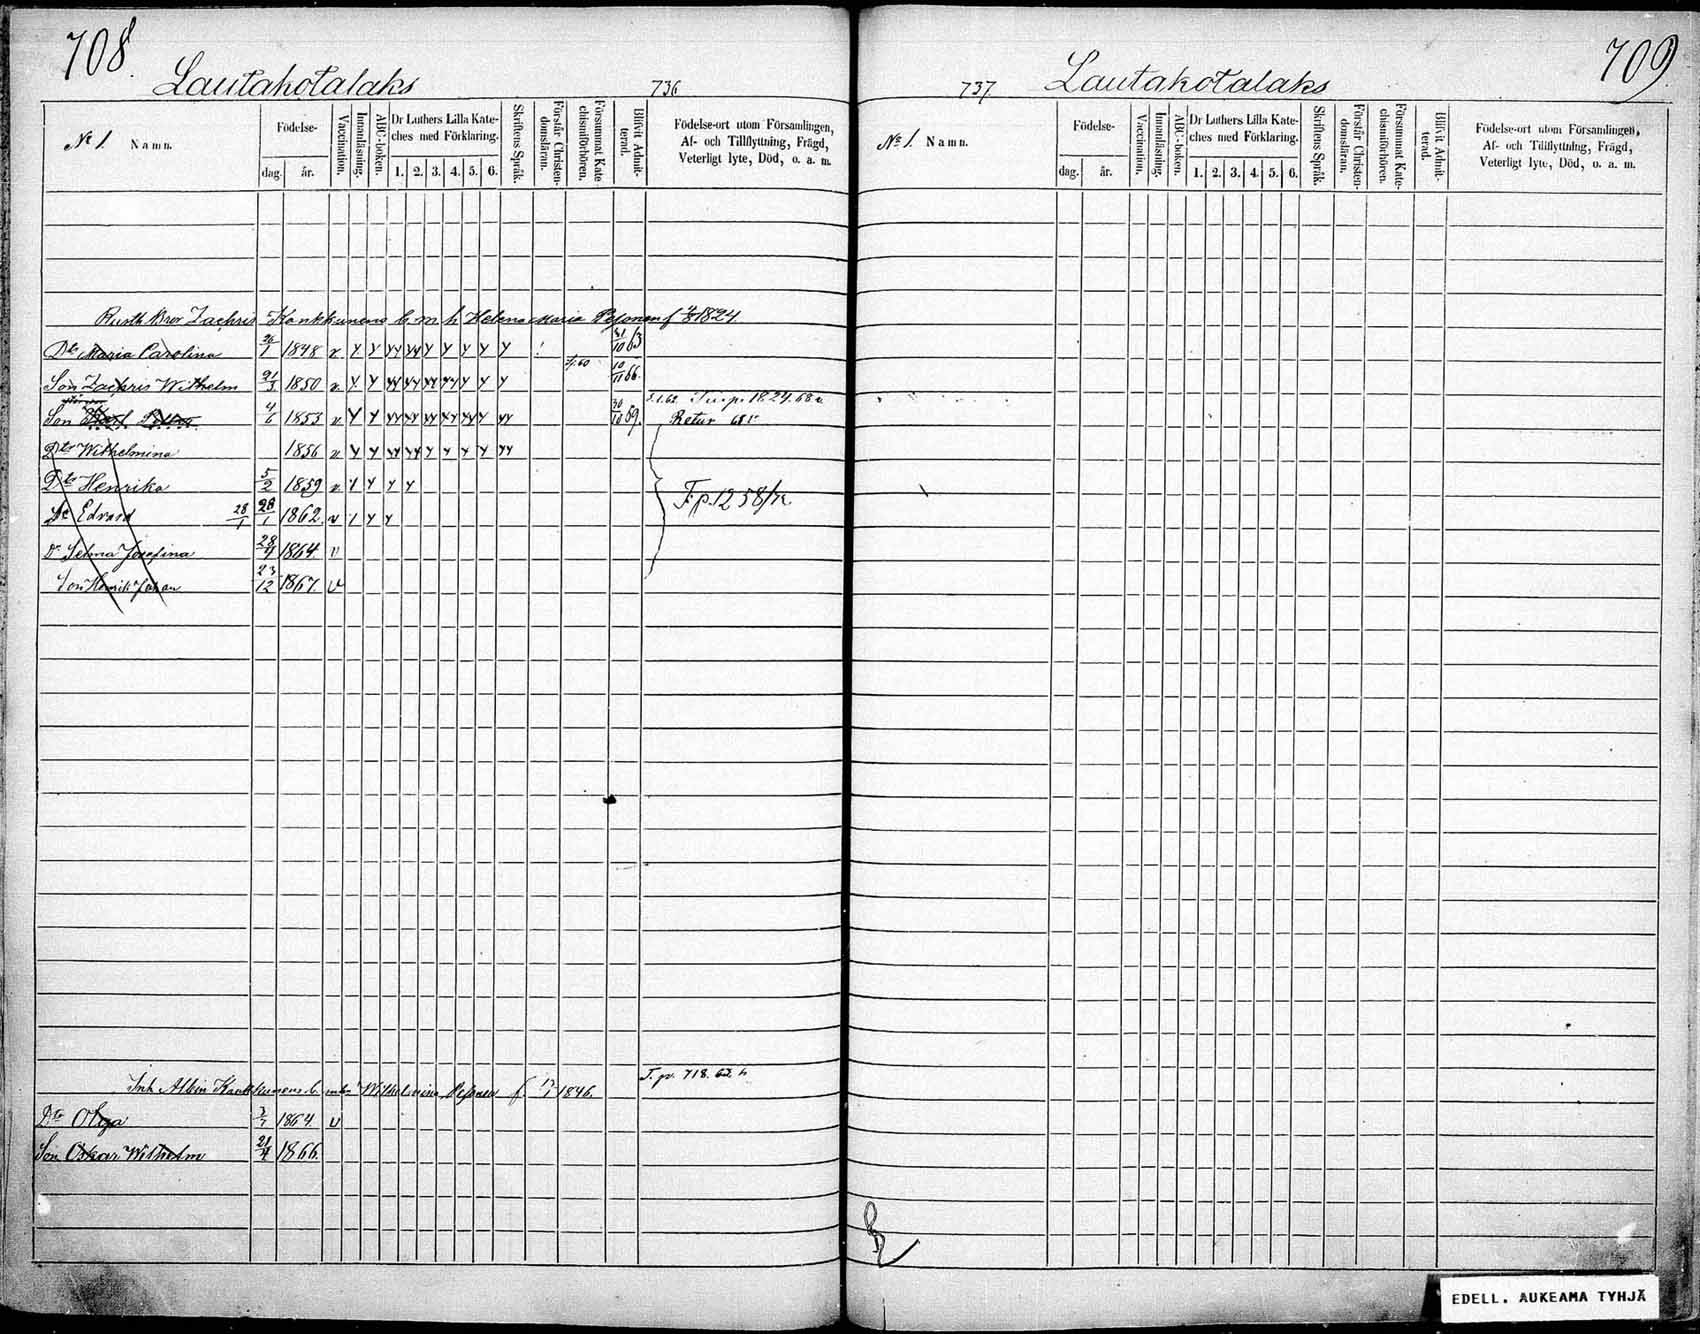 708.
Lautakotalaks
736
№ 1. Namn.
Födelse-
dag.
år.
Vaccination.
Innanläsning.
ABC-boken.
Dr Luthers Lilla Kate-
ches med Förklaring.
1. 2. 3. 4. 5. 6.
Skriftens Språk.
Förstår Christen-
domsläran.
Försummat Kate
chismiförhören.
Blifvit Admit-
terad.
Födelse-ort utom Församlingen,
Af- och Tillflyttning, Frägd,
Veterligt lyte, Död, o. a. m.
Zachris Kankkunens b m h Helena Maria Pesonen f 1824.
Dtr Maria Carolina 26/1 1848 v 31/10 63
Son Zachris Wilhelm 21/3 1850 v 10/11 66.
Son 4/6 1853 v 30/10 69.
Retur
Dtr Wilhelmina 1856 v
Dtr Henrika 5/2 1859 v
Edvard 28/1 28/1 1862 v
F. p. 1258
Dr Selma Josefina 28/4 1864 v
Son Henrik Johan 23/12 1867. v
Inh Albin Kankkunens b Wilhelmina Pesonen f. 1846.
F. p. 718. 62.
Dtr Olga 1864 v
Son Oskar Wilhelm 21/4 1866.
709
737.
Lautakotalaks
№ 1. Namn.
Födelse-
dag.
år.
Vaccination.
Innanläsning.
ABC-boken.
Dr Luthers Lilla Kate-
ches med Förklaring.
1. 2. 3. 4. 5. 6.
Skriftens Språk.
Förstår Christen-
domsläran.
Försummat Kate-
chismiförhören.
Blifvit Admit-
terad.
Födelse-ort utom Församlingen,
Af- och Tillflyttning, Frägd,
Veterligt lyte, Död, o. a. m.
EDELL. AUKEAMA TYHJÄ